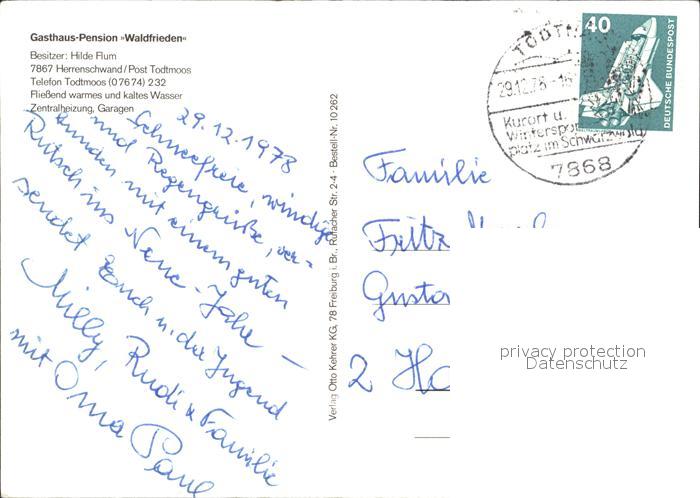 Gasthaus-Pension »Waldfrieden«
Besitzer: Hilde Flum
7867 Herrenschwand/Post Todtmoos
Telefon Todtmoos (07674) 232
Fließend warmes und kaltes Wasser
Zentralheizung, Garagen
29.12.1978
Schneefreie, windige
und Regengrüße, ver=
bunden mit einem guten
Rutsch ins Neue Jahr —
sendet Euch u. der Jugend
Milly, Rudi u Familie
mit Oma Paul
Verlag Otto Kehrer KG, 78 Freiburg i. Br., Rufacher Str. 2-4 · Bestell-Nr. 10 262
40
DEUTSCHE BUNDESPOST
29.12.78
Kurort u.
Winterspor
platz im Schwarzwald
7868
Familie
Fritz
Gusta
2 Ha
privacy protection
Datenschutz